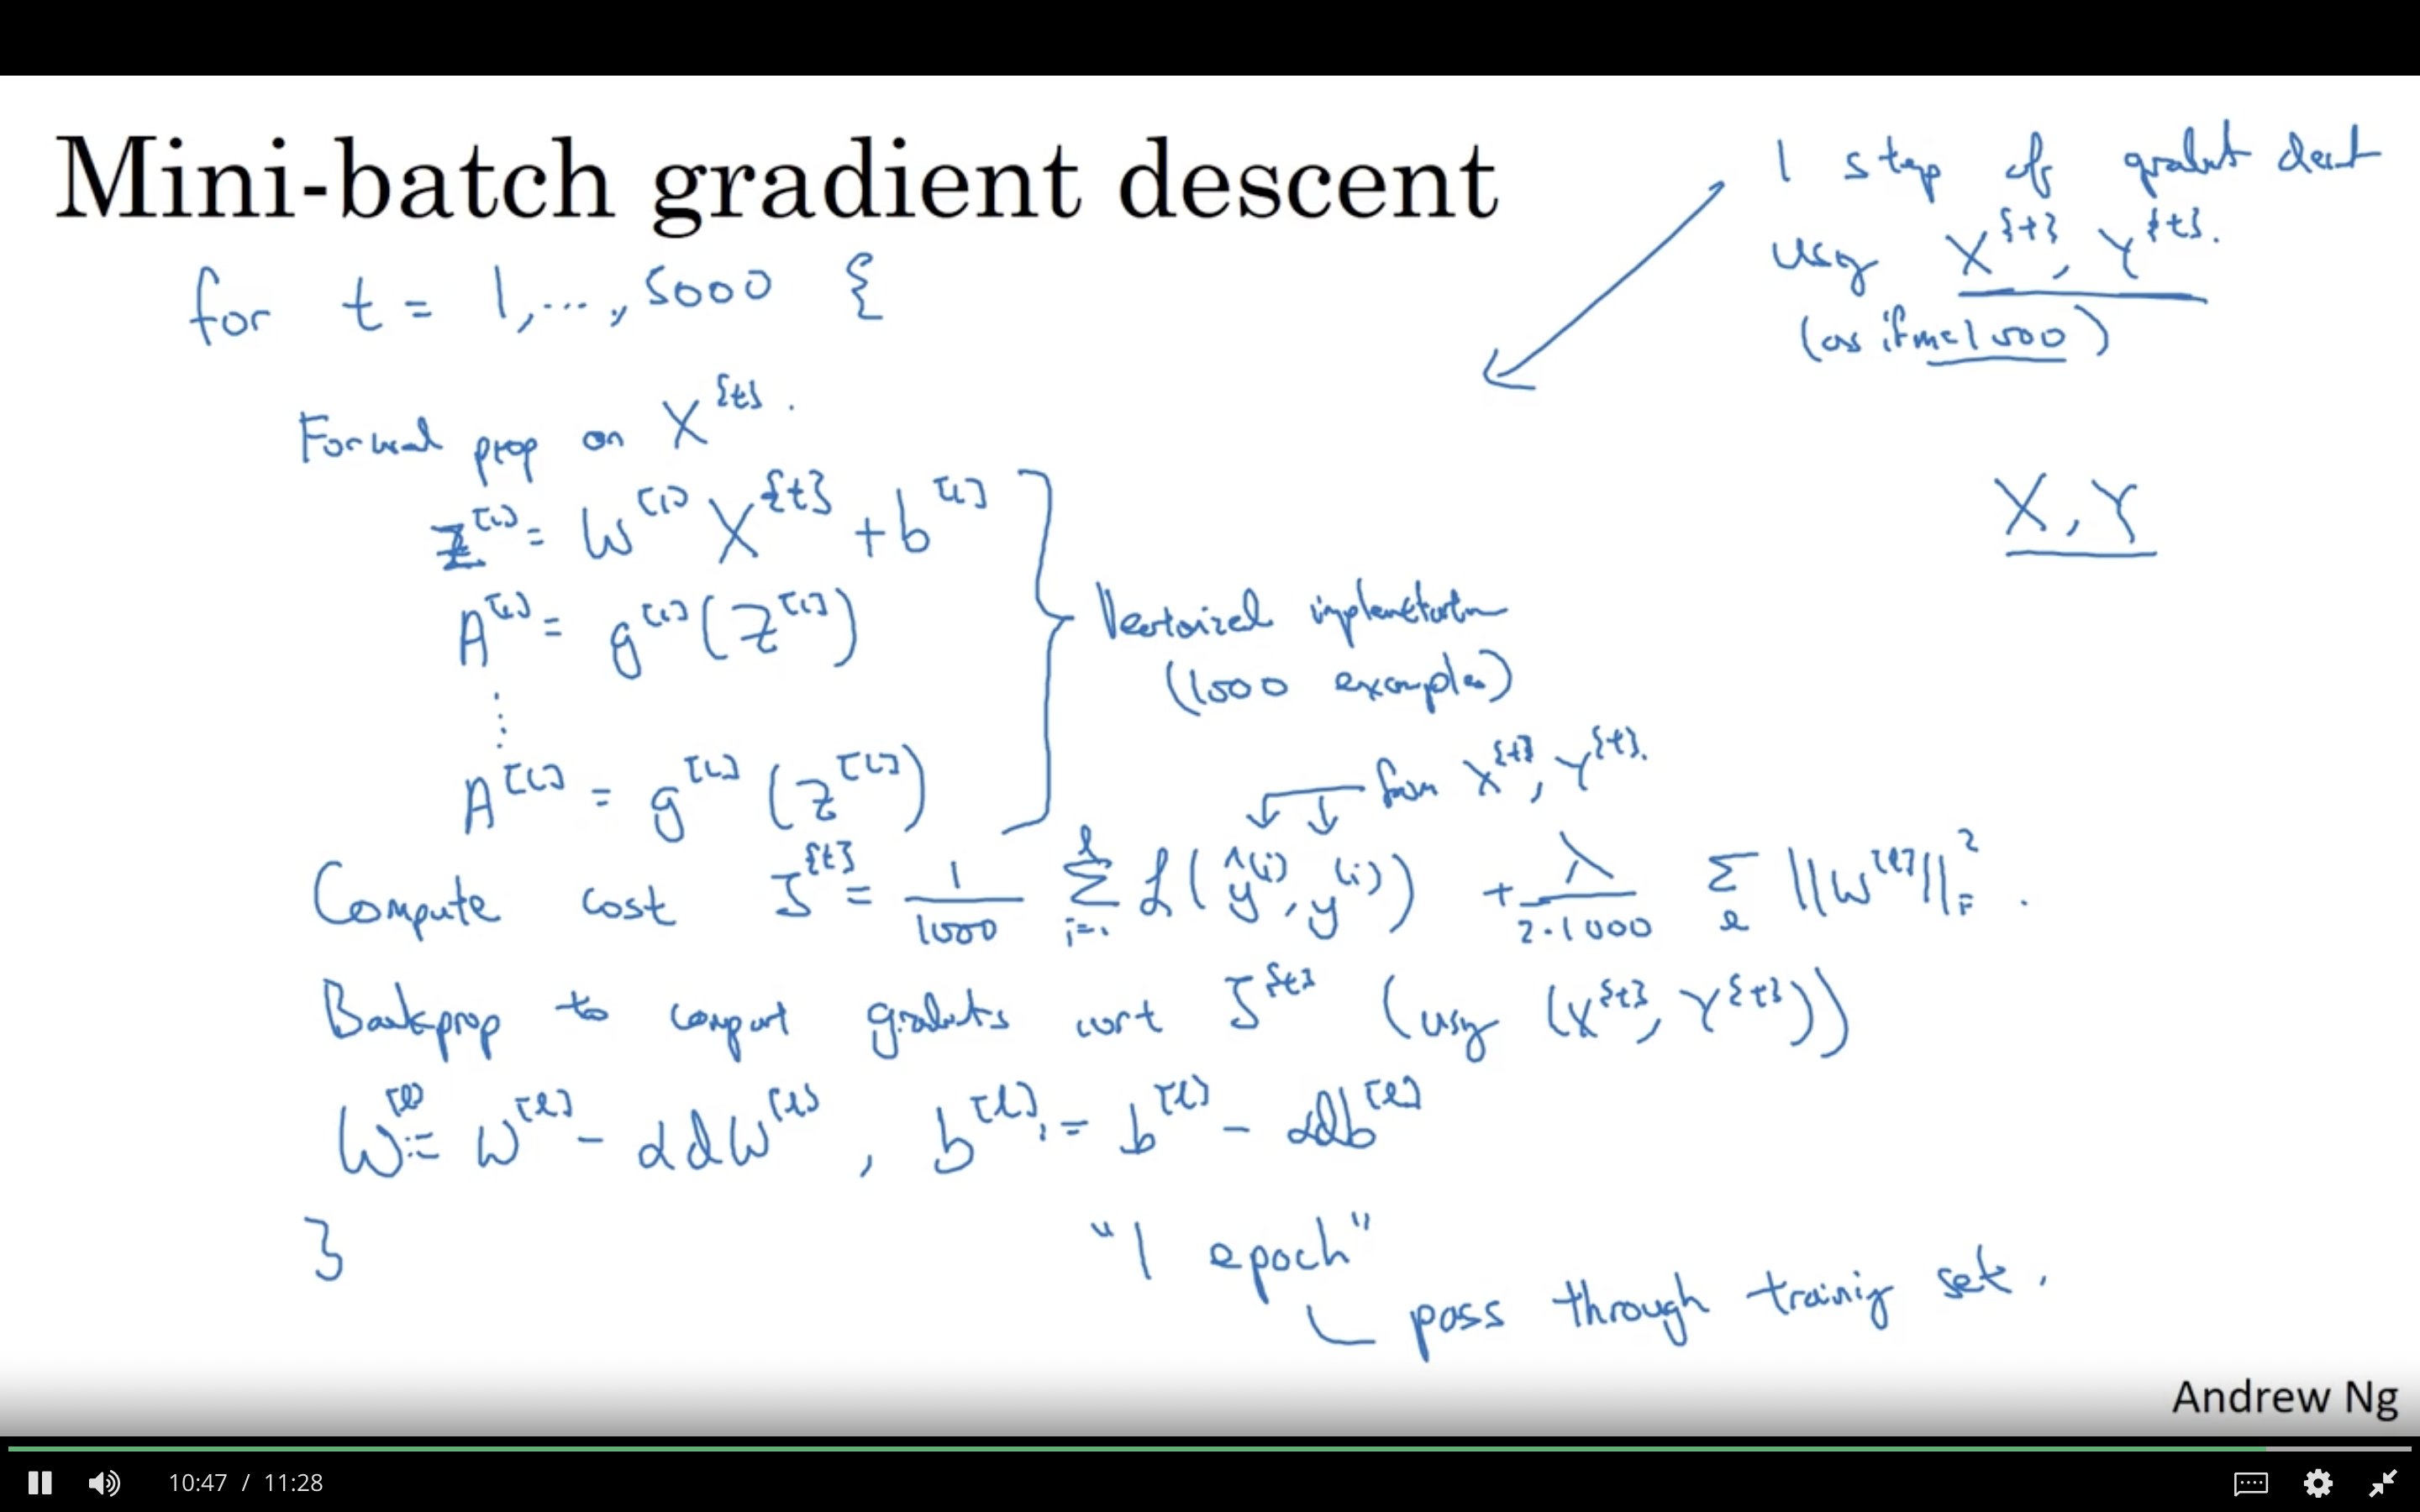 Mini-batch gradient descent
1 step of gradient descent
using X^{t}, Y^{t}.
(as if m=1000)
for t = 1,..., 5000 {
Forward prop on X^{t}.
X, Y
Z^[1] = W^[1] X^{t} + b^[1]
A^[1] = g^[1](Z^[1])
Vectorized implementation
(1000 examples)
⋮
A^[L] = g^[L](Z^[L])
from X^{t}, Y^{t}.
Compute cost J^{t} = 1/1000 Σ_{i=1}^{l} L(ŷ^(i), y^(i)) + λ/2·1000 Σ_l ||W^[l]||_F^2.
Backprop to compute gradients wrt J^{t} (using (X^{t}, Y^{t}))
W^[l] := W^[l] - αdW^[l], b^[l] := b^[l] - αdb^[l]
}
"1 epoch"
pass through training set.
Andrew Ng
10:47 / 11:28